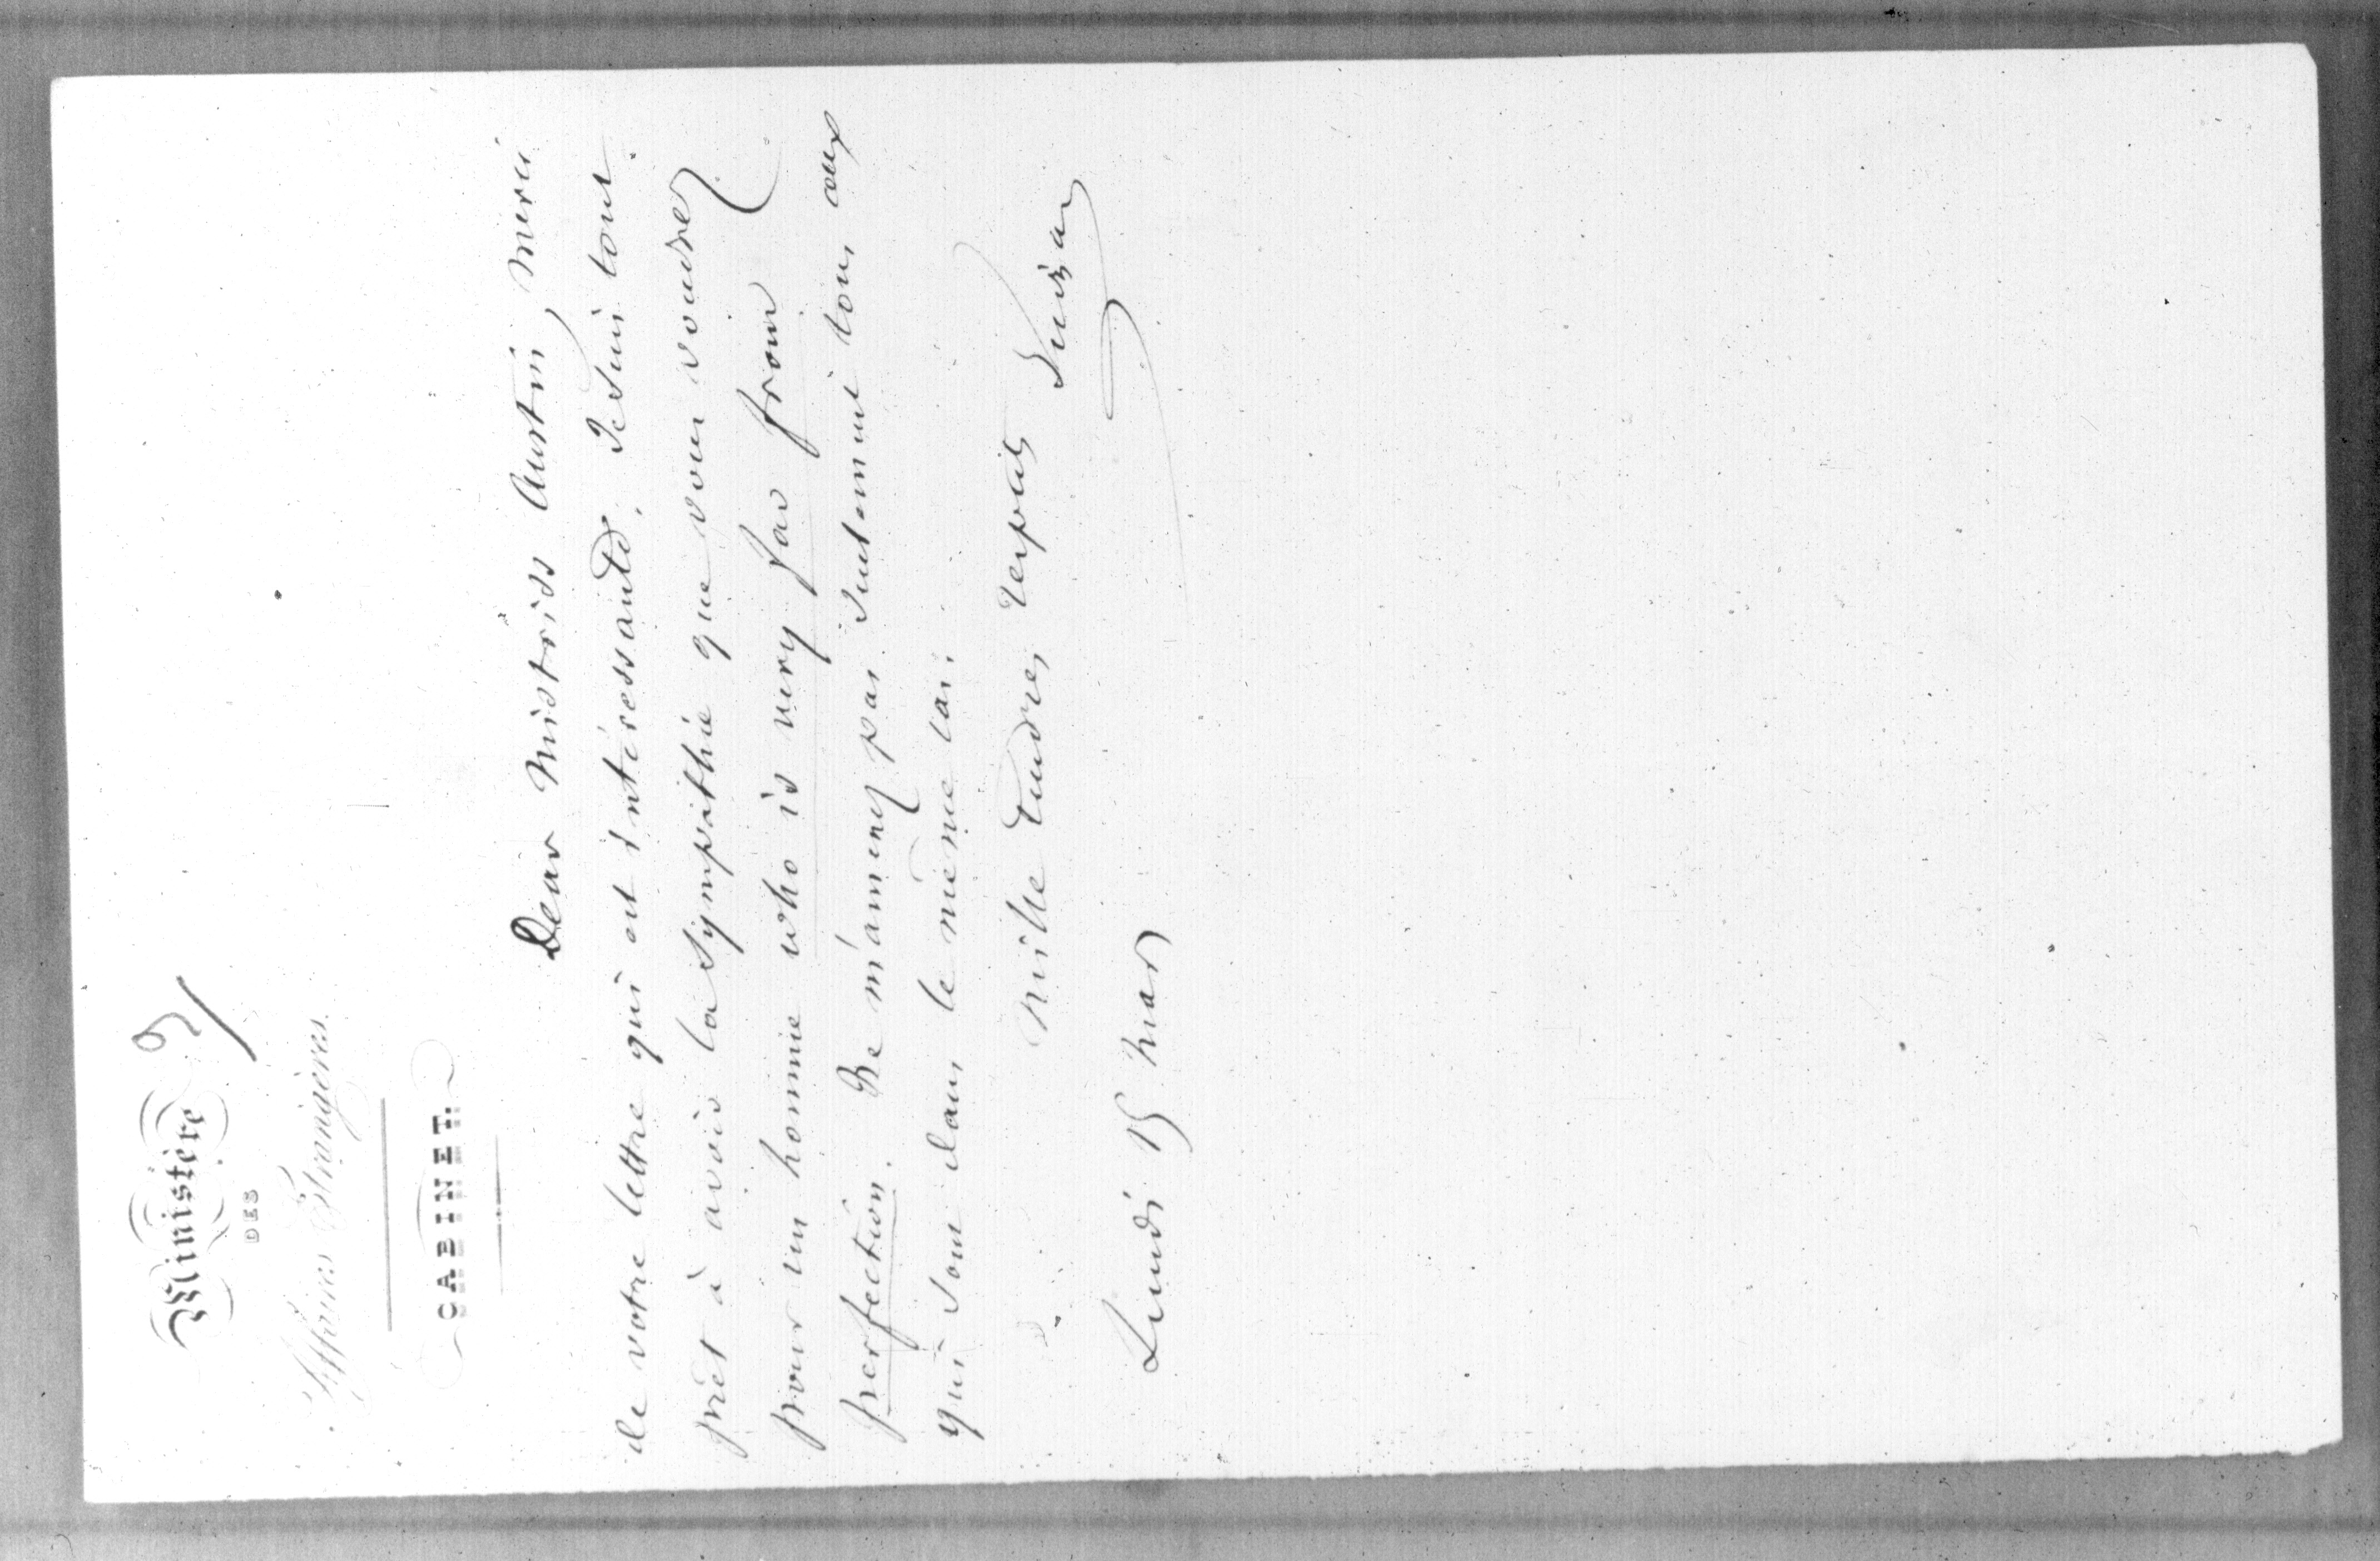 Ministère
DES
Affaires Étrangères.
CABINET.
9/
Dear Mistriss Austin, merci
de votre lettre qui est intéressante. Je suis tout
prêt à avoir la sympathie que vous voudrez
pour un homme who is very far from
perfection. Ne m'amenez pas seulement tous ceux
qui sont dans le même cas.
Mille tendres respects
Guizot
Lundi 15 Mars